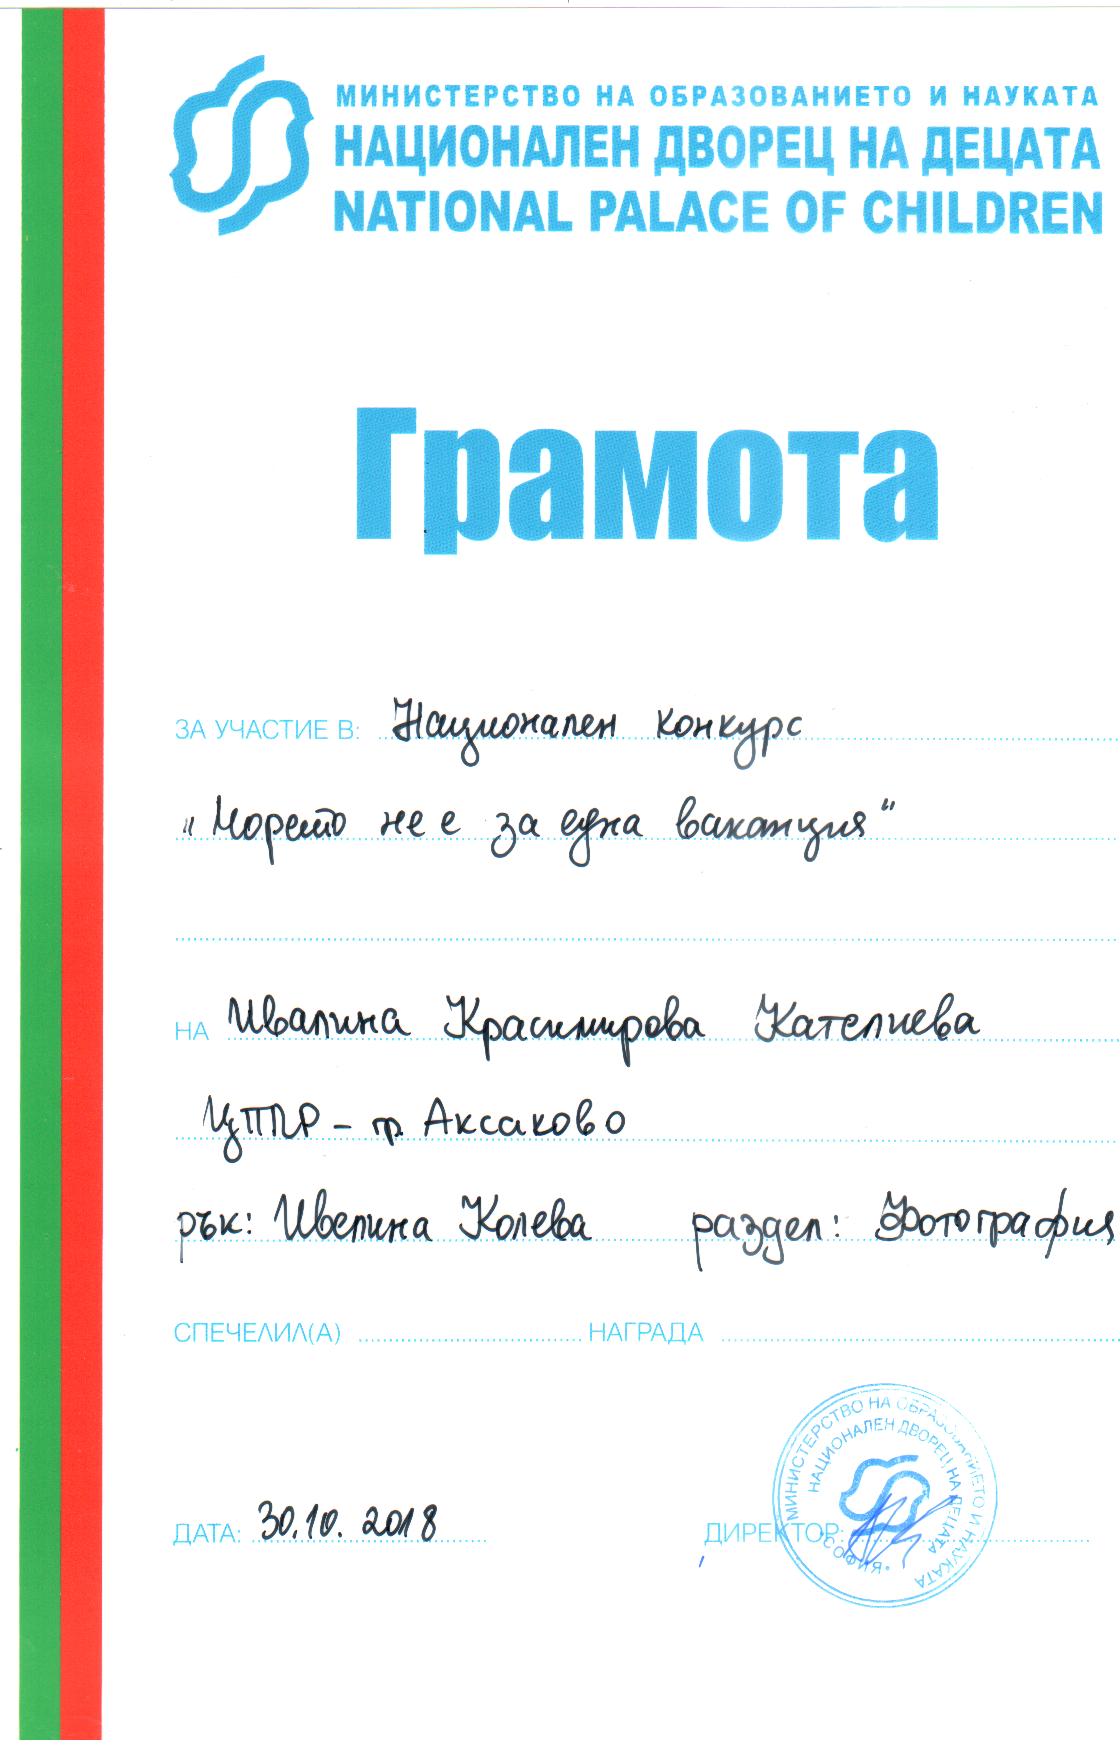 МИНИСТЕРСТВО НА ОБРАЗОВАНИЕТО И НАУКАТА
НАЦИОНАЛЕН ДВОРЕЦ НА ДЕЦАТА
NATIONAL PALACE OF CHILDREN
Грамота
ЗА УЧАСТИЕ В: Национален конкурс
„Морето не е за една ваканция“
НА Ивалина Красимирова Кателиева
ЦПЛР – гр. Аксаково
рък: Ивелина Колева раздел: Фотография
СПЕЧЕЛИЛ(А) НАГРАДА
МИНИСТЕРСТВО НА ОБРАЗОВАНИЕТО И НАУКАТА
НАЦИОНАЛЕН ДВОРЕЦ НА ДЕЦАТА
СОФИЯ
ДАТА: 30.10.2018 ДИРЕКТОР: